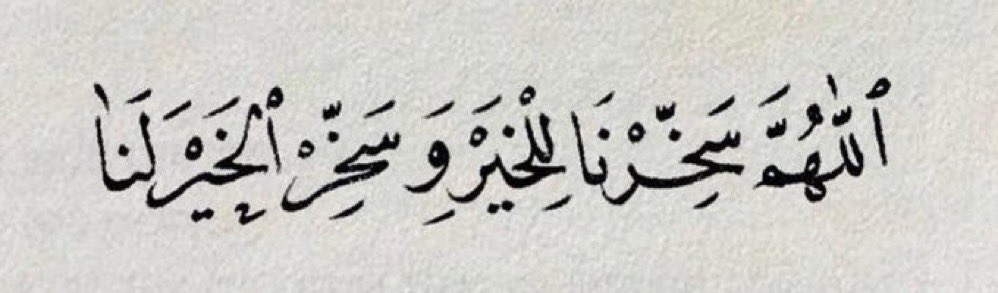 ٱللَّهُمَّ سَخِّرْنَا لِلْخَيْرِ وَ سَخِّرْ ٱلْخَيْرَ لَنَا